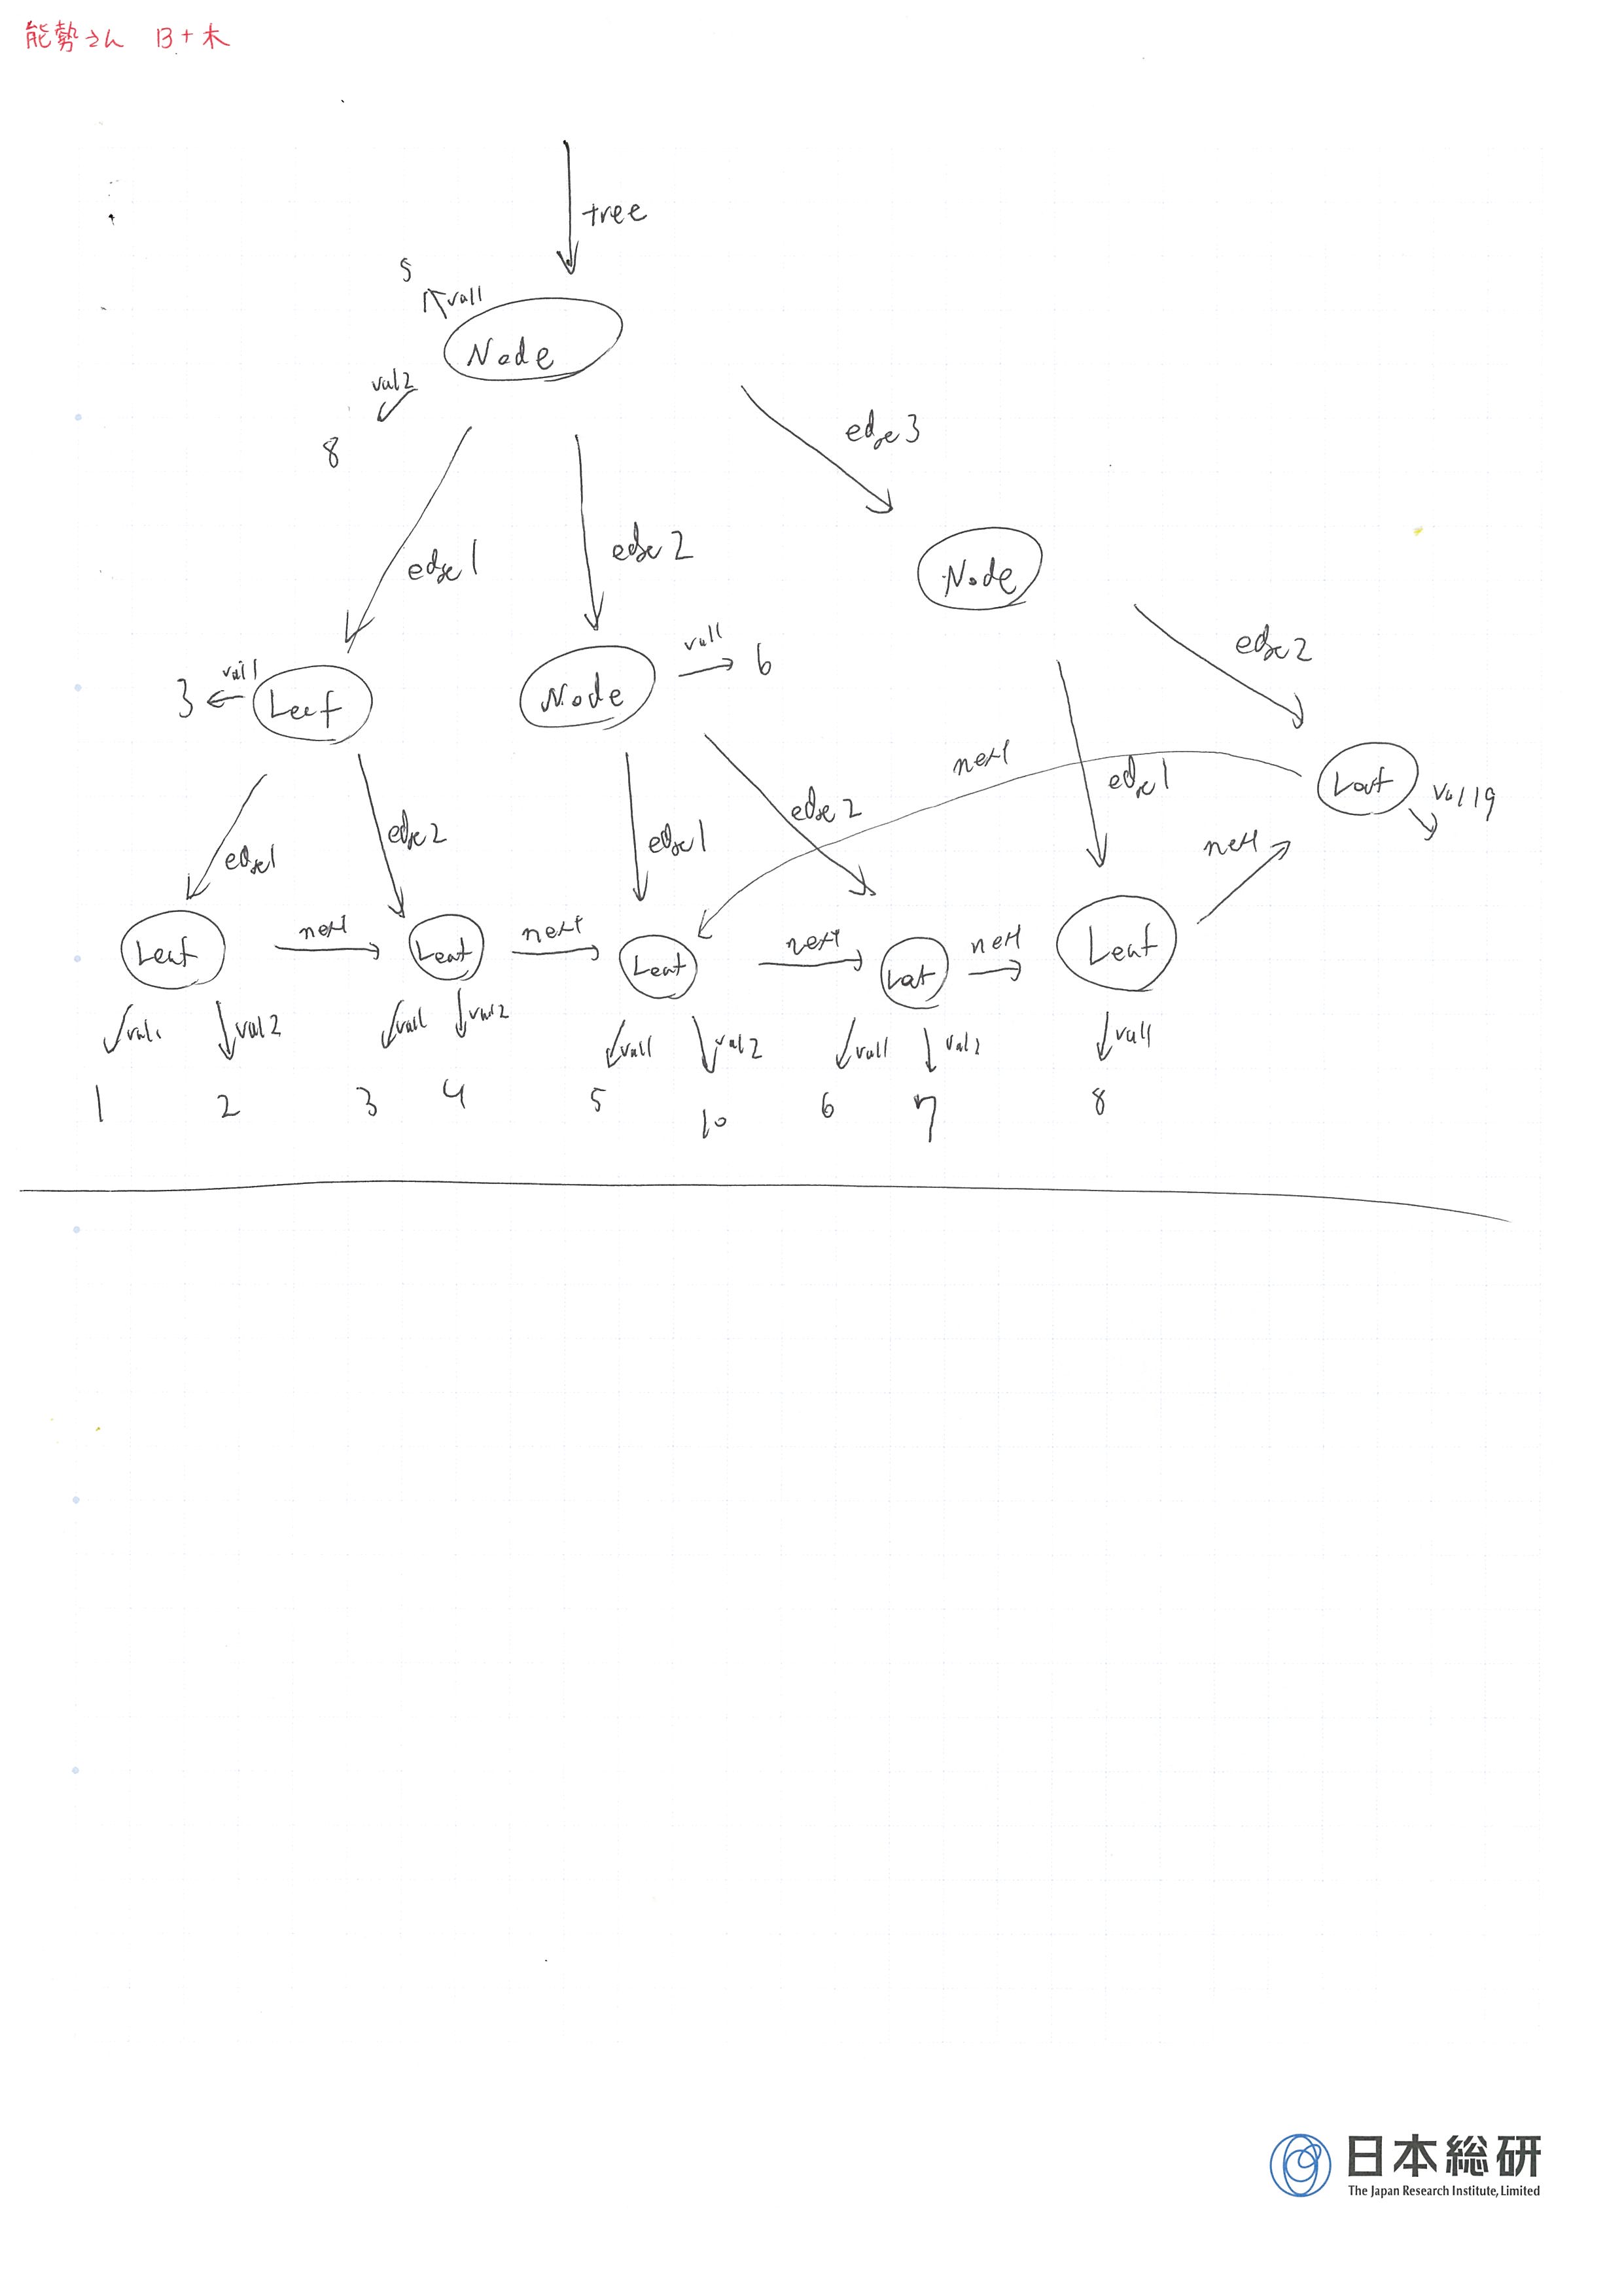 能勢さん B+木
tree
5
val1
Node
val2
8
edge3
edge1
edge2
Node
val1
3
Leaf
Node
val1
6
edge2
next
edge1
Leaf
val1 9
edge1
edge2
edge1
edge2
next
Leaf
next
Leaf
next
Leaf
next
Leaf
next
Leaf
val1
val2
val1
val2
val1
val2
val1
val2
val1
1
2
3
4
5
10
6
7
8
日本総研
The Japan Research Institute, Limited